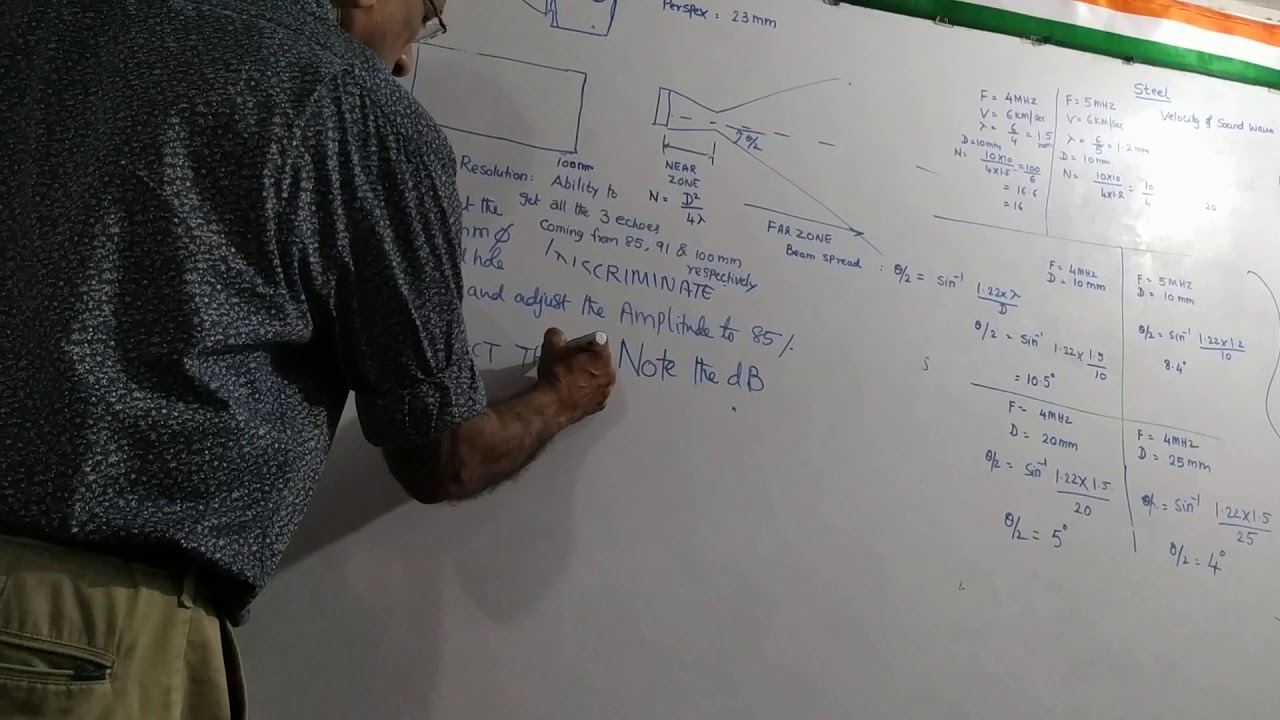 Perspex = 23mm
100mm
Resolution: Ability to
get all the 3 echoes
coming from 85, 91 & 100mm
respectively
DISCRIMINATE
the
mm Ø
hole
and adjust the Amplitude to 85%
Note the dB
NEAR
ZONE
N = D²/4λ
θ/2
FAR ZONE
Beam spread : θ/2 = Sin⁻¹ 1.22×λ/D
Steel
Velocity of Sound Wave
F = 4MHz
V = 6KM/sec
λ = 6/4 = 1.5 mm
D = 10mm
N = 10×10/4×1.5 = 100/6
= 16.6
= 16
F = 5MHz
V = 6KM/sec
λ = 6/5 = 1.2mm
D = 10mm
N = 10×10/4×1.2 = 10/4
20
F = 4MHz
D = 10mm
θ/2 = Sin⁻¹ 1.22×1.5/10
= 10.5°
F = 5MHz
D = 10mm
θ/2 = Sin⁻¹ 1.22×1.2/10
8.4°
F = 4MHz
D = 20mm
θ/2 = Sin⁻¹ 1.22×1.5/20
θ/2 = 5°
F = 4MHz
D = 25mm
θ/2 = Sin⁻¹ 1.22×1.5/25
θ/2 = 4°